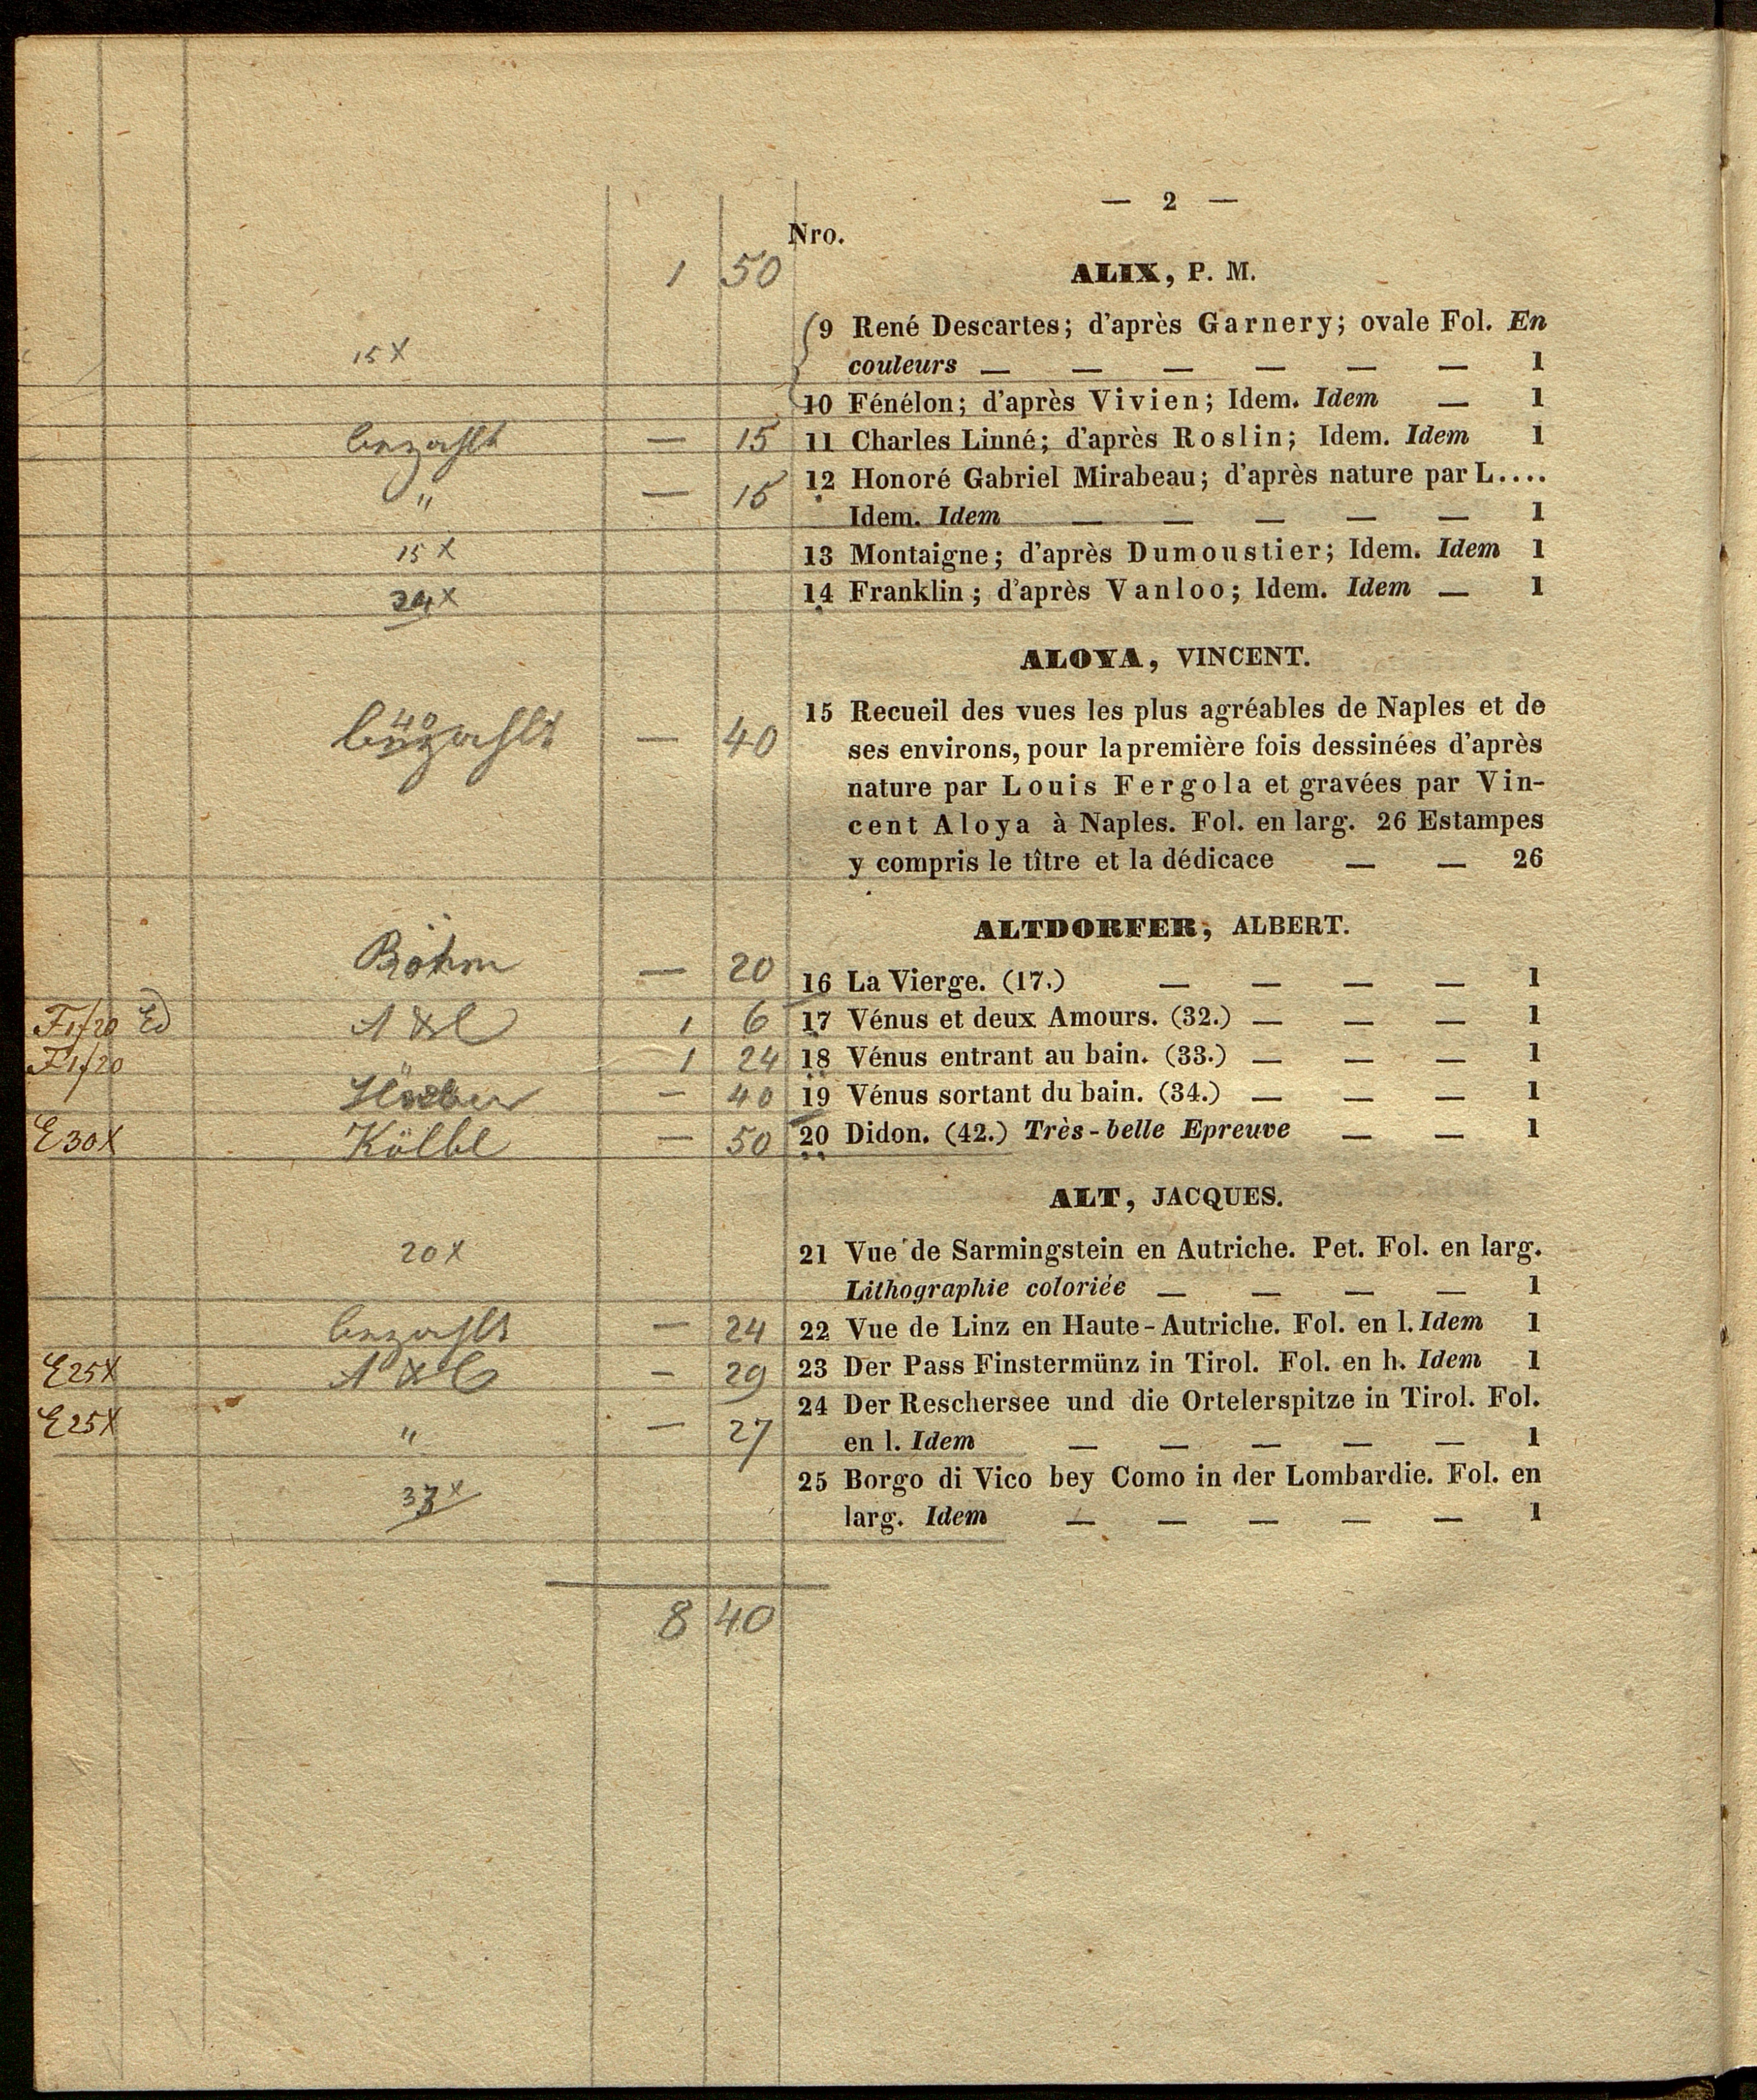 — 2 —
Nro.
1 50
ALIX, P. M.
9 René Descartes; d'après Garnery; ovale Fol. En
15 x couleurs — — — — — — 1
10 Fénélon; d'après Vivien; Idem. Idem — 1
bezahlt — 15 11 Charles Linné; d'après Roslin; Idem. Idem 1
" — 15 12 Honoré Gabriel Mirabeau; d'après nature par L....
Idem. Idem — — — — — 1
15 x 13 Montaigne; d'après Dumoustier; Idem. Idem 1
14 Franklin; d'après Vanloo; Idem. Idem — 1
ALOYA, VINCENT.
15 Recueil des vues les plus agréables de Naples et de
bezahlt — 40 ses environs, pour la première fois dessinées d'après
nature par Louis Fergola et gravées par Vin-
cent Aloya à Naples. Fol. en larg. 26 Estampes
y compris le tître et la dédicace — — 26
ALTDORFER, ALBERT.
Böhm — 20 16 La Vierge. (17.) — — — — 1
F1/20 1 6 17 Vénus et deux Amours. (32.) — — — 1
F1/20 1 24 18 Vénus entrant au bain. (33.) — — — 1
— 40 19 Vénus sortant du bain. (34.) — — — 1
E30x Kölbl — 50 20 Didon. (42.) Très-belle Epreuve — — 1
ALT, JACQUES.
20 x 21 Vue de Sarmingstein en Autriche. Pet. Fol. en larg.
Lithographie coloriée — — — — 1
bezahlt — 24 22 Vue de Linz en Haute-Autriche. Fol. en l. Idem 1
E25x — 29 23 Der Pass Finstermünz in Tirol. Fol. en h. Idem 1
24 Der Reschersee und die Ortelerspitze in Tirol. Fol.
E25x " — 27 en l. Idem — — — — — 1
25 Borgo di Vico bey Como in der Lombardie. Fol. en
larg. Idem — — — — — 1
8 40